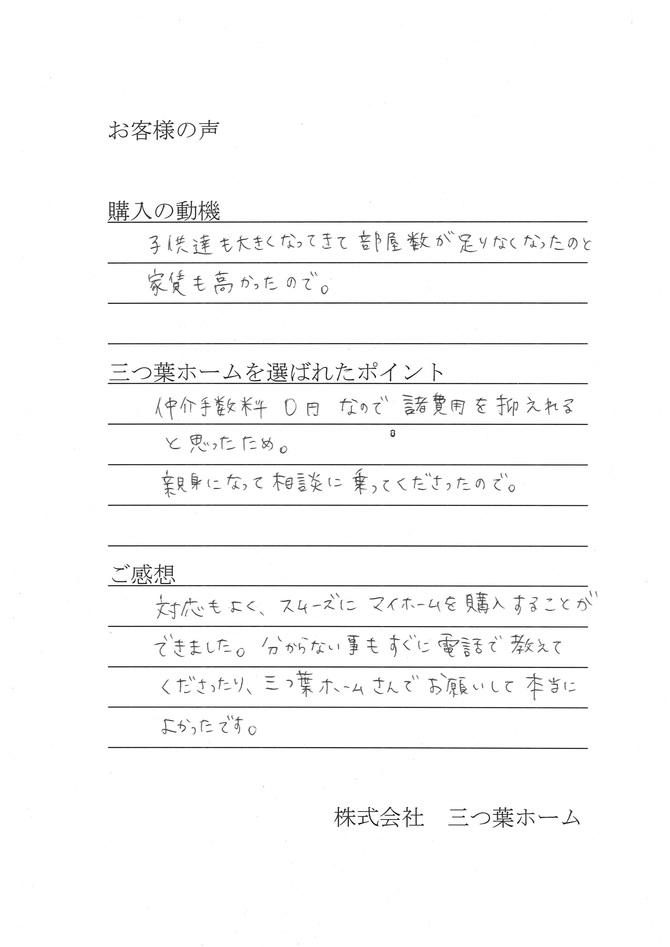 お客様の声
購入の動機
子供達も大きくなってきて部屋数が足りなくなったのと
家賃も高かったので。
三つ葉ホームを選ばれたポイント
仲介手数料 0円 なので 諸費用を抑えれる
と思ったため。
親身になって相談に乗ってくださったので。
ご感想
対応もよく、スムーズに マイホームを購入することが
できました。分からない事もすぐに電話で教えて
くださったり、三つ葉ホームさんでお願いして本当に
よかったです。
株式会社 三つ葉ホーム